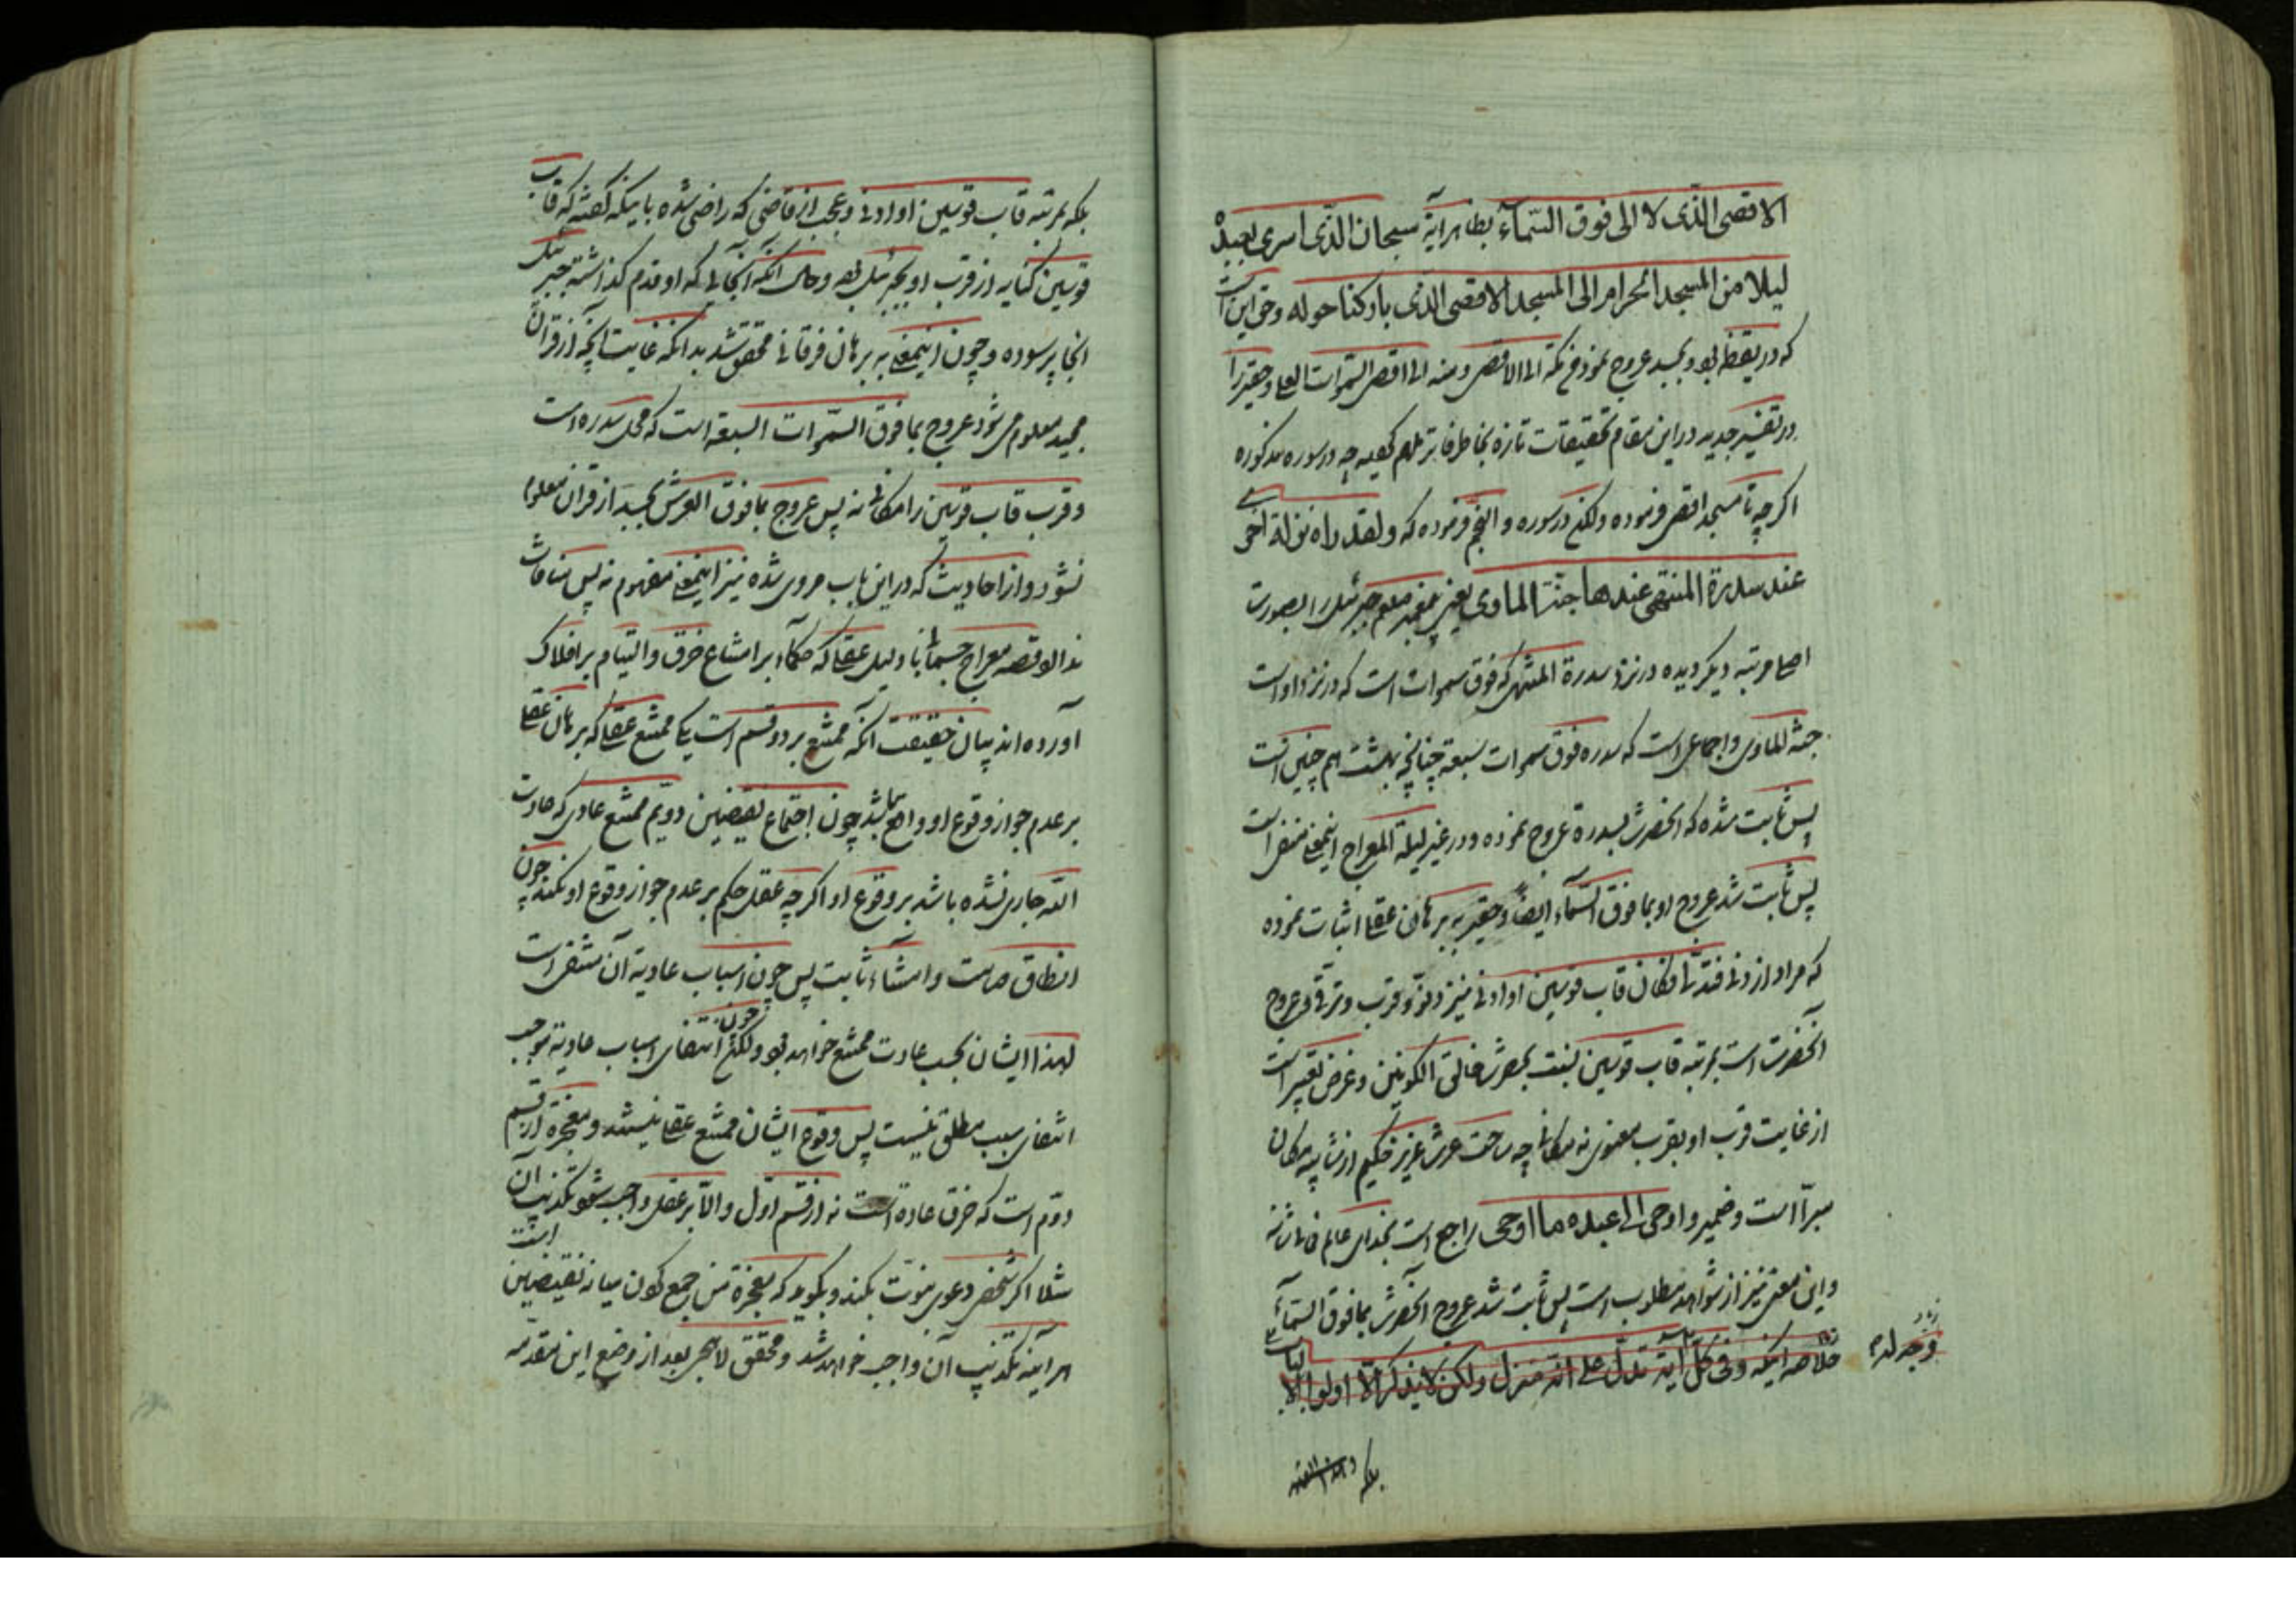 الاقصی الذی لا الی فوق السّمآء بظاهر آیة سبحان الذی اسری بعبده
لیلا من المسجد الحرام الی المسجد الاقصی الذی بارکنا حوله وحق این است
که در یقظه بود و بجسد عروج نموده من مکة الی الاقصی ومنه الی اقصی السموات العلی وحقیر را
در تفسیر جدید در این مقام تحقیقات تازه بخاطر فاتر ملهم چه در سوره مذکوره
اکرچه تا مسجد اقصی فرموده ولکن در سوره والنجم فرموده که ولقد راه نزلة اخری
عند سدرة المنتهی عندها جنة الماوی یعنی پیغمبر صلعم جبرئیل را بصورت
اصلی مرتبه دیکر دیده در نزد سدرة المنتهی که فوق سموات است که در نزد او است
جنة الماوی واجماعی است که سدره فوق سموات سبعه چنانچه بهشت هم چنین است
پس ثابت شده که آنحضرت بسدره عروج نموده ودر غیر لیلة المعراج اینمعنی منتفی است
پس ثابت شد عروج او بما فوق السّمآء ایضا وحقیر به برهان عقلی اثبات نموده
که مراد از دنی فتدلی فکان قاب قوسین او ادنی نیز دنو وقرب وترقی وعروج
آنحضرت است بمرتبه قاب قوسین بنسبت بحضرت خالق الکونین وغرض تعبیر است
از غایت قرب او بقرب معنوی نه مکانی چه ساحت عرش عزیز حکیم از شایبه مکان
مبرّا است وضمیر واوحی الی عبده ما اوحی راجع است بخدای عالم
واین معنی نیز از شواهد مطلوب است پس ثابت شد عروج آنحضرت بما فوق السمآء
خلاصه اینکه وفی کل آیة تدل علی انه منزل ولکن لا یذکر الا اولوا الالباب
بلکه
بلکه بمرتبه قاب قوسین او ادنی وعجب از قاضی که راضی شده باینکه کفته که قاب
قوسین کنایه از قرب او بجبرئیل بود وحال آنکه آنجائی که او قدم کذاشته جبرئیل
آنجا پر سوده وچون اینمعنی به برهان فرقانی محقق شد بدانکه غایت آنچه از قرآن
مجید معلوم می شود عروج بما فوق السّموات السبعه است که محل سدره است
وقرب قاب قوسین را مکانی نه پس عروج بما فوق العرش بجسد از قرآن معلوم
نشود واز احادیث که در این باب مروی شده نیز اینمعنی مفهوم نه پس منافات
ندارد قصه معراج جسمانی با دلیل عقلی که حکمآء بر امتناع خرق والتیام بر افلاک
آورده اند بیان حقیقت آنکه ممتنع بر دو قسم است یکی ممتنع عقلی که برهان عقلی
بر عدم جواز وقوع او واقع باشد چون اجتماع نقیضین دویم ممتنع عادی که عادت
الله جاری نشده باشد بر وقوع او اکرچه عقل حکم بر عدم جواز وقوع او نکند چون
انطاق صامت وامشاء ثابت پس چون اسباب عادیه آن منتفی است
لهذا ایشان بحسب عادت ممتنع خواهد بود ولکن چون انتفای اسباب عادیه موجب
انتفای سبب مطلق نیست پس وقوع ایشان ممتنع عقلی نیستند ومعجزه از قسم
دوّم است که خرق عادة است نه از قسم اوّل والّا بر عقل واجب شود تکذیب آن
مثلا اکر شخصی دعوی نبوّت بکند وبکوید که معجزه من جمع کردن میانه نقیضین است
هر آینه تکذیب آن واجب خواهد شد ومحقق لاهیجی بعد از وضع این مقدمه